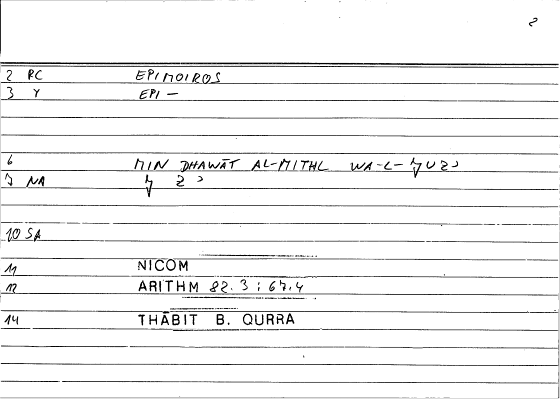 2
2 RC EPIMOIROS
3 Y EPI —
6 MIN DHAWĀT AL-MITHL WA-L-ǦUZʾ
7 NA Ǧ Z ʾ
10 SA
11 NICOM
12 ARITHM 82.3 ; 67.4
14 THĀBIT B. QURRA